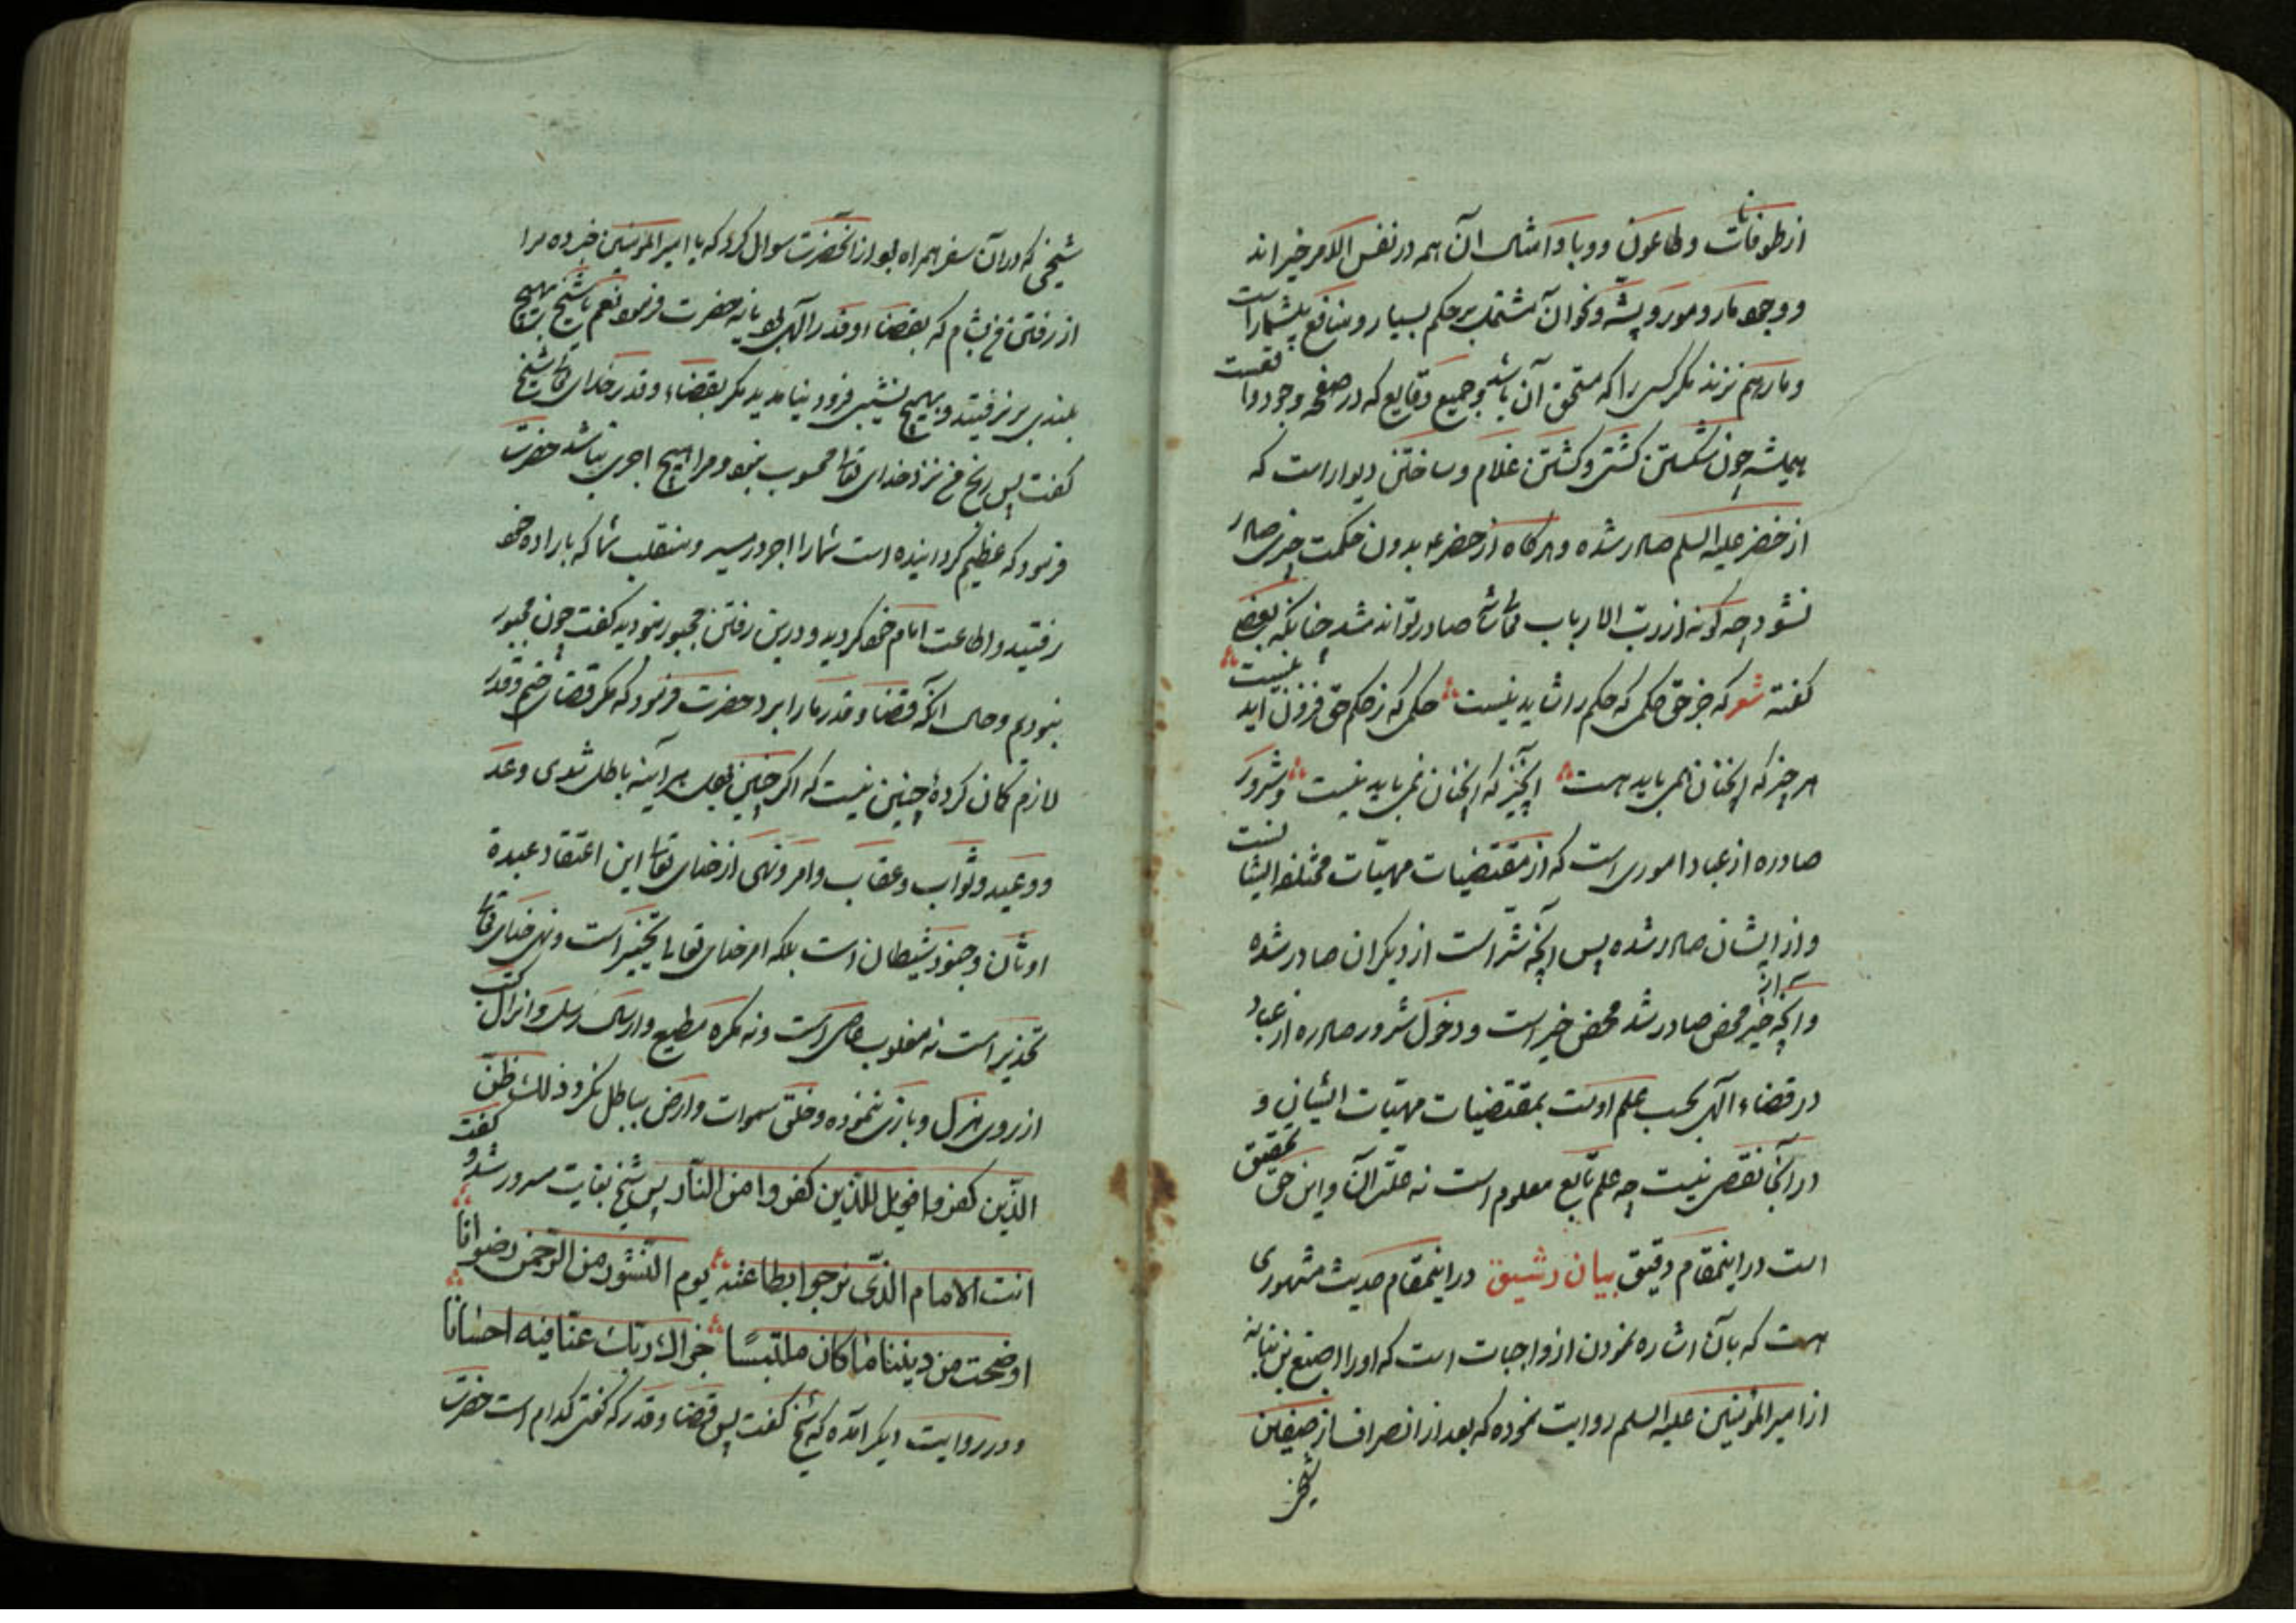 از طوفانات و طاعون و وبا و امثال آن همه در نفس الامر خیراند
و وجود مار و مور و پشه و نحو آن مشتمل بر حکم بسیار و منافع بیشمار است
و مار هم نزند مگر کسی را که مستحق آن باشد و جمیع وقایع که در صفحه وجود واقعست
همیشه چون شکستن کشتی و کشتن غلام و ساختن دیوار است که
از خضر علیه السلم صادر شده و هرگاه از خضر ع بدون حکمت چیزی صادر
نشود چه گونه از رب الارباب تعالی شانه صادر تواند شد چنانکه بعضی
گفته شعر که جز حق حکمی که حکم را شاید نیست حکمی که ز حکم حق فزون آید نیست
هر چیز که آنچنان همی باید هست آنچیز که آنچنان نمی باید نیست و شرور
صادره از عباد اموری است که از مقتضیات مهیّات مختلفه ایشانست
و از ایشان صادر شده پس آنچه شر است از دیگران صادر شده
و آنچه از خیر محض صادر شد محض خیر است و دخول شرور صادره از عباد
در قضاء الهی بحسب علم اوست بمقتضیات مهیّات ایشان و
در آنجا نقصی نیست چه علم تابع معلوم است نه علت آن و این حق تحقیق
است در اینمقام دقیق بیان رشیق در اینمقام حدیث مشهوری
هست که بآن اشاره نمودن از واجبات است که او را اصبغ بن نباته
از امیر المؤمنین علیه السلم روایت نموده که بعد از انصراف از صفین
شیخی
شیخی که در آن سفر همراه بود از آنحضرت سوال کرد که یا امیر المؤمنین خبر ده مرا
از رفتن ما بشام که بقضاء و قدر الهی بود یا نه حضرت فرمود نعم یا شیخ بهیچ
بلندی بر نرفتید و بهیچ نشیبی فرود نیامدید مگر بقضاء و قدر خدای تعالی شیخ
گفت پس رنج من نزد خدای تعالی محسوب نبود و مرا هیچ اجری نباشد حضرت
فرمود که عظیم گردانیده است شما را اجر در مسیر و منقلب شما که باراده خود
رفتید و اطاعت امام خود کردید و درین رفتن مجبور نبودید گفت چون مجبور
نبودیم و حال آنکه قضا و قدر ما را برد حضرت فرمود که مگر قضای حتم و قدر
لازم گمان کردهٔ چنین نیست که اگر چنین بود هر آینه باطل شدی وعد
و وعید و ثواب و عقاب و امر و نهی از خدای تعالی این اعتقاد عبدة
اوثان و جنود شیطان است بلکه امر خدای تعالی تخییر است و نهی خدای تعالی
تحذیر است نه مغلوب عاصی است و نه مکره مطیع و ارسال رسل و انزال کتب
از روی هزل و بازی ننموده و خلق سموات و ارض بباطل نکرد ذلك ظن
الذین کفروا فویل للذین کفروا من النار پس شیخ بغایت مسرور شد و گفت
انت الامام الذی نرجوا بطاعته یوم النشور من الرحمن رضوانا
اوضحت من دیننا ما کان ملتبسًا جزاك ربك عنا فیه احسانا
و در روایت دیگر آمده که شیخ گفت پس قضا و قدر که گفتی کدام است حضرت